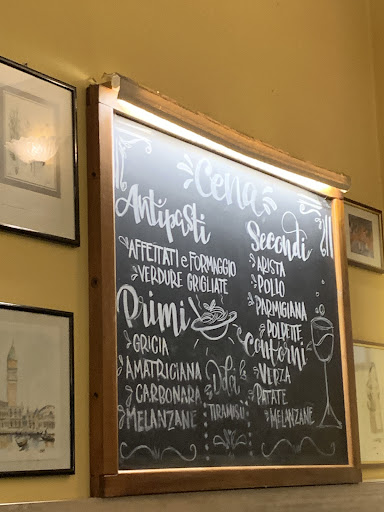 Cena
Antipasti
AFFETTATI e FORMAGGIO
VERDURE GRIGLIATE
Primi
GRICIA
AMATRICIANA
CARBONARA
MELANZANE
Dolci
TIRAMISÙ
Secondi
ARISTA
POLLO
PARMIGIANA
POLPETTE
Contorni
VERZA
PATATE
MELANZANE